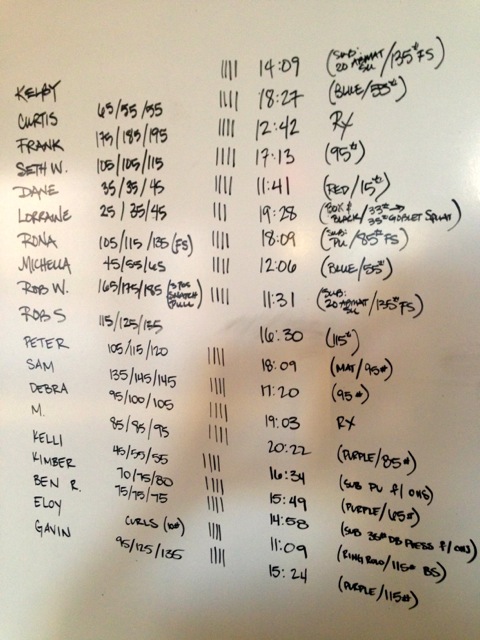 KELBY |||| 14:09 (SUB: 20 ABMAT SU /135# FS)
CURTIS 65/55/55 |||| 18:27 (BLUE/55#)
FRANK 175/185/195 |||| 12:42 RX
SETH W. 105/105/115 |||| 17:13 (95#)
DANE 35/35/45 |||| 11:41 (RED/15#)
LORRAINE 25/35/45 ||| 19:28 (BOX & BLACK/33#→ 35# GOBLET SQUAT)
RONA 105/115/135 (FS) |||| 18:09 (SUB: PU/85# FS)
MICHELLA 45/55/65 |||| 12:06 (BLUE/55#)
ROB W. 165/175/185 (3 POS SNATCH PULL) |||| 11:31 (SUB: 20 ABMAT SU /135# FS)
ROB S 115/125/155 16:30 (115#)
PETER 105/115/120 |||| 18:09 (MAT/95#)
SAM 135/145/145 |||| 17:20 (95#)
DEBRA 95/100/105 |||| 19:03 RX
M. 85/85/95 |||| 20:22 (PURPLE/85#)
KELLI 45/55/55 |||| 16:34 (SUB PU f/OHS)
KIMBER 70/75/80 |||| 15:49 (PURPLE/65#)
BEN R. 75/75/75 |||| 14:58 (SUB 35# DB PRESS f/OHS)
ELOY CURLS (10#) |||| 11:09 (RING ROW/115# BS)
GAVIN 95/125/135 |||| 15:24 (PURPLE/115#)